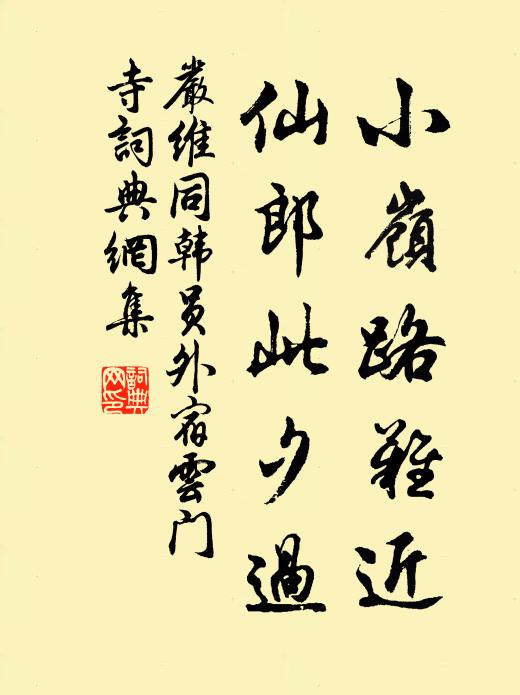 小嶺路難近
仙郎此夕過
嚴維同韩員外宿雲门
寺詞典網集
詞典
网印